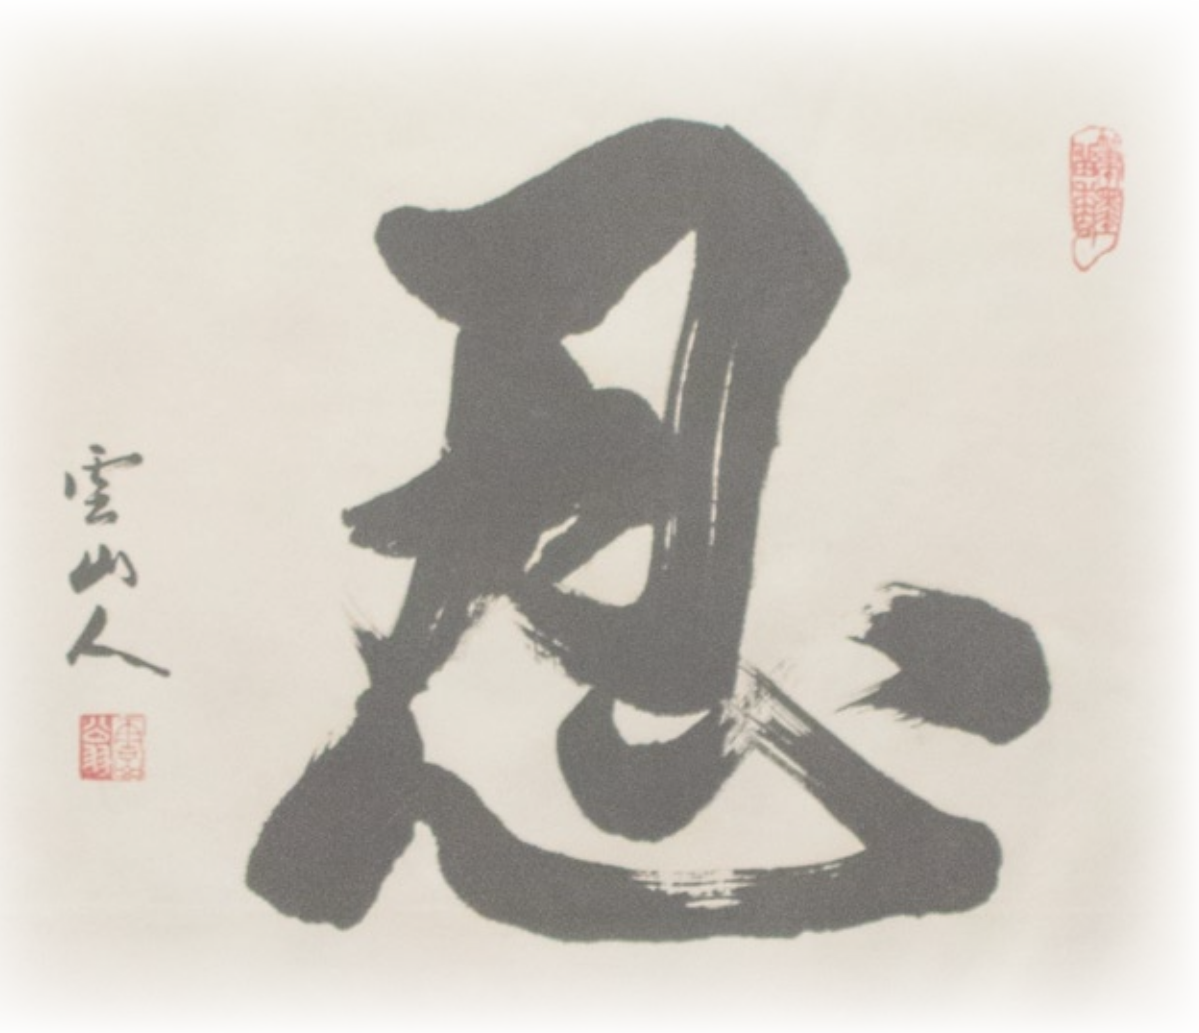 忍
雲山人